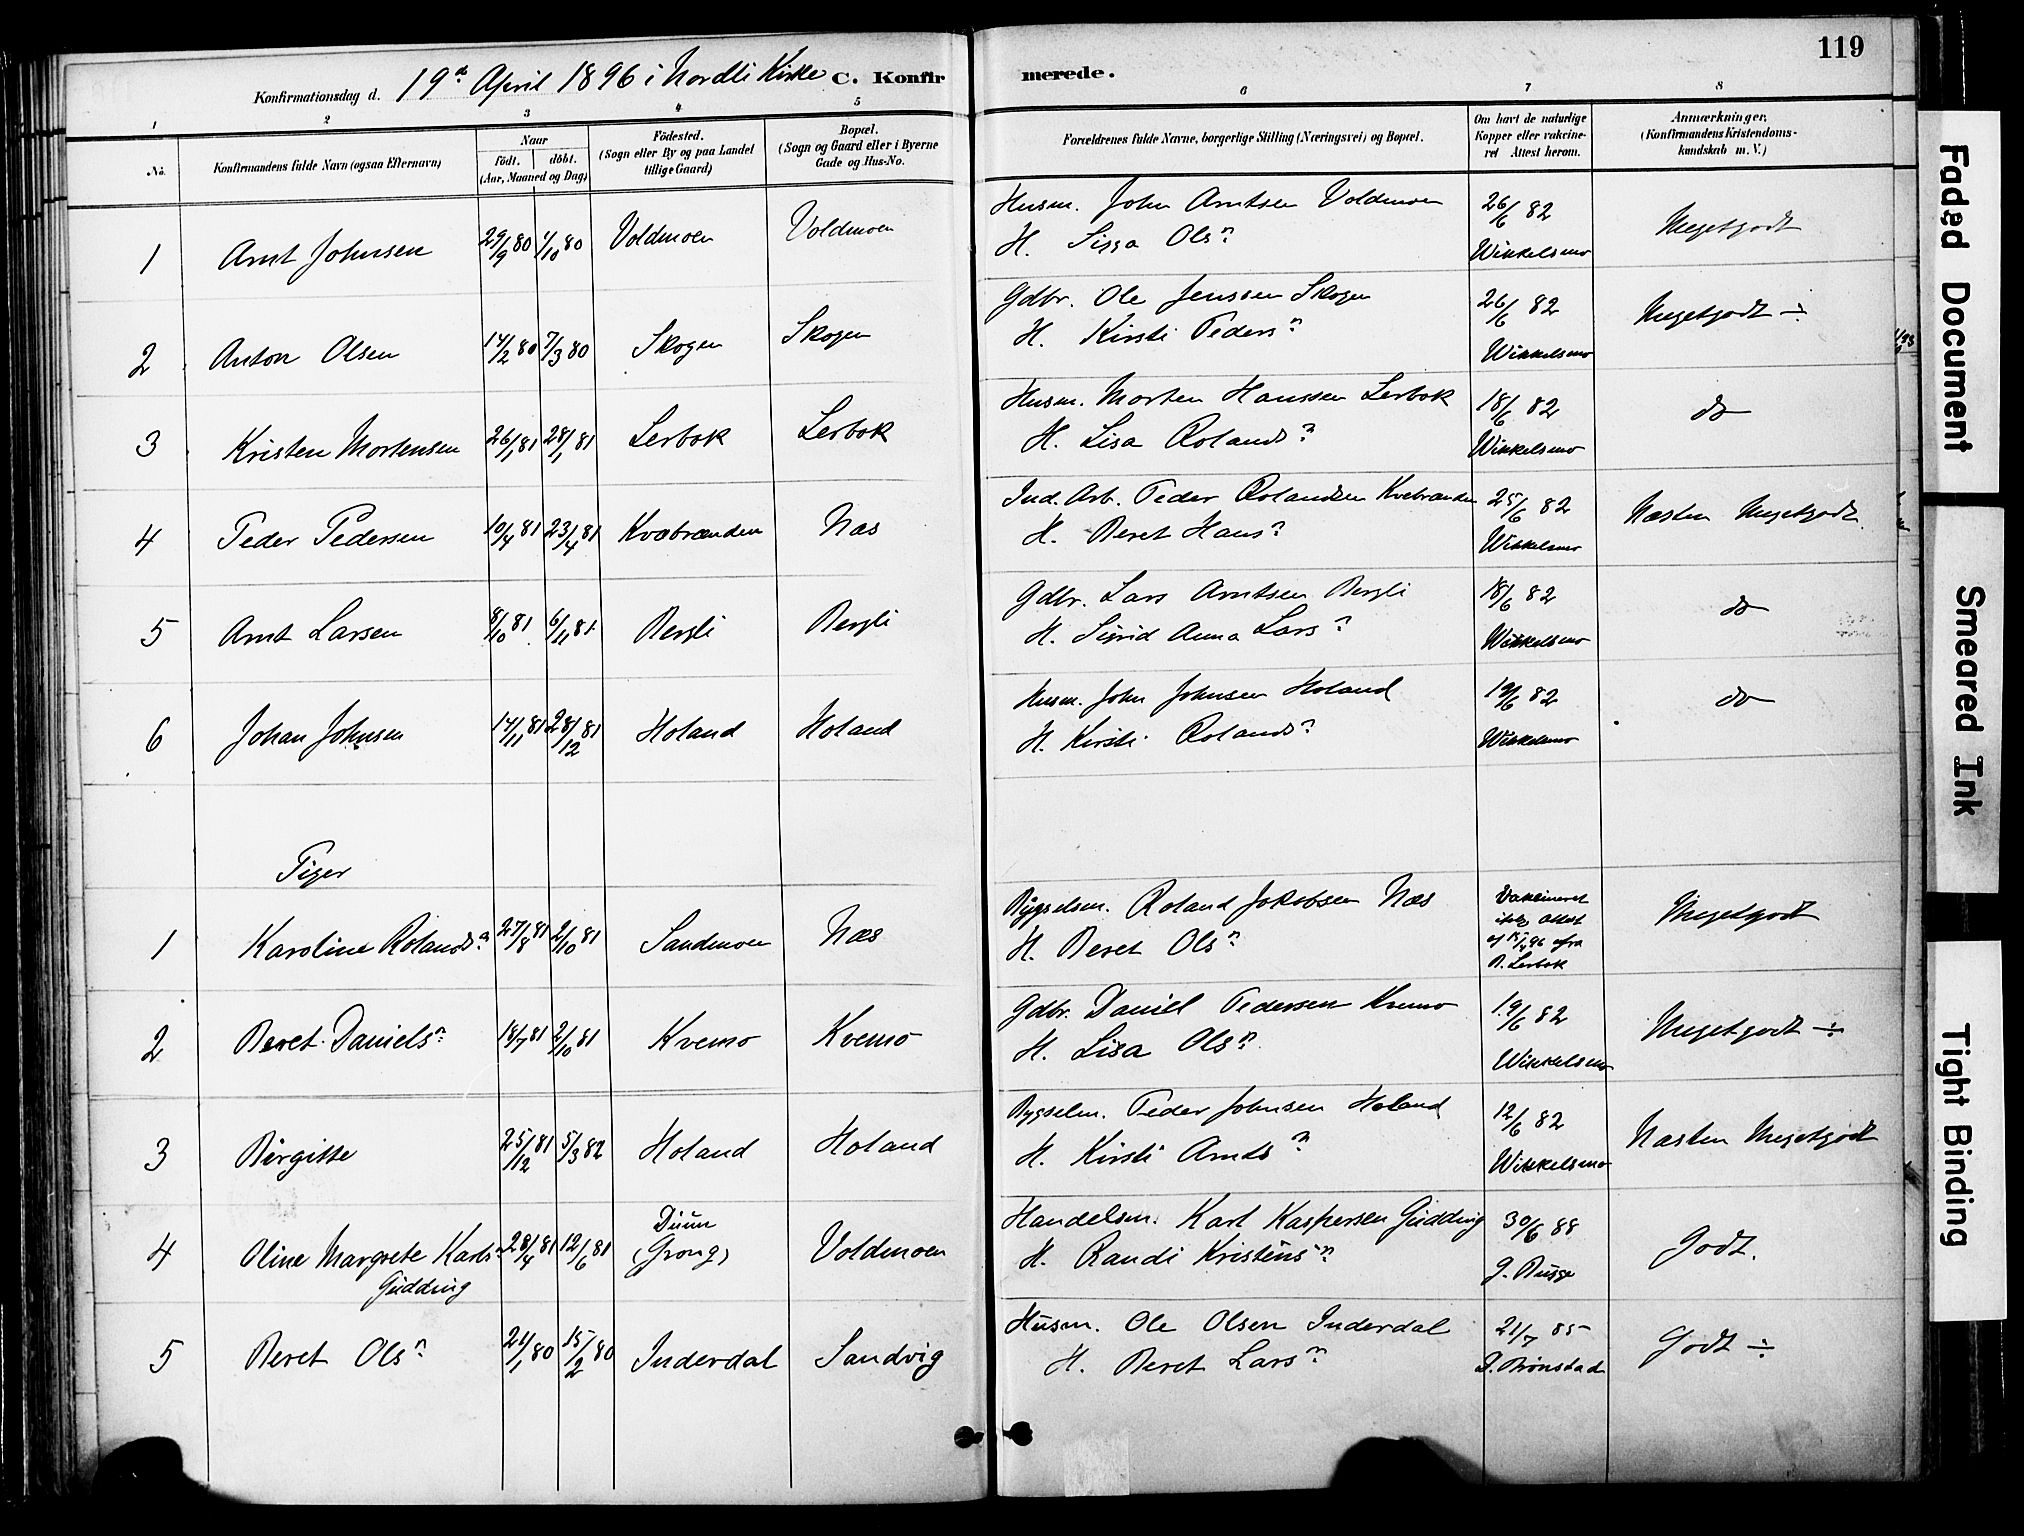 119
Konfirmationsdag d. 19de April 1896 i Nordli Kirke C. Konfirmerede.
1 2 3 4 5 6 7 8
No. Konfirmandens fulde Navn (ogsaa Efternavn) Naar født. døbt. (Aar, Maaned og Dag) Fødested. (Sogn eller By og paa Landet tillige Gaard) Bopæl. (Sogn og Gaard eller i Byerne Gade og Hus-No.
Forældrenes fulde Navne, borgerlige Stilling (Næringsvei) og Bopæl. Om havt de naturlige Kopper eller vakcineret Attest herom. Anmærkninger. (Konfirmandens Kristendomskundskab m. V.)
1 Arnt Johnsen 29/9 80 1/10 80 Voldmoen Voldmoen Husm. John Arntsen Voldmoen 26/6 82 Megetgodt
H. Sissa Olsn Wikkelsmo
2 Anton Olsen 14/2 80 7/3 80 Skogen Skogen Gdbr. Ole Jenssen Skogen 26/6 82 Megetgodt ÷
H. Kirsti Pedersn Wikkelsmo
3 Kristen Mortensen 26/1 81 28/1 81 Lerbok Lerbok Husm. Morten Hanssen Lerbok 18/6 82 do
H. Lisa Rolandsn Wikkelsmo
4 Peder Pedersen 10/4 81 23/4 81 Kvæbrænden Næs Ind. Arb. Peder Rolandsen Kvebrænden 25/6 82 Næsten Megetgodt
H. Beret Hansn Wikkelsmo
5 Arnt Larsen 8/10 81 6/11 81 Bergli Bergli Gdbr. Lars Arntsen Bergli 18/6 82 do
H. Sigrid Anna Larsn Wikkelsmo
6 Johan Johnsen 14/11 81 28/12 81 Holand Holand Husm. John Johnsen Holand 19/6 82 do
H. Kirsti Rolandsn Wikkelsmo
Piger
1 Karoline Rolandsn 27/8 81 2/10 81 Sandmoen Næs Bygselsm. Roland Jakobsen Næs Vakcineret Megetgodt
H. Beret Olsn ifølg Attest
af 15/4 96 fra
B. Lerbok
2 Beret Danielsn 18/7 81 2/10 81 Kvemo Kvemo Gdbr. Daniel Pedersen Kvemo 19/6 82 Megetgodt ÷
H. Lisa Olsn Wikkelsmo
3 Birgitte 25/12 81 5/3 82 Holand Holand Bygselm. Peder Johnsen Holand 12/6 82 Næsten Megetgodt
H. Kirsti Arntsn Wikkelsmo
4 Oline Margrete Karlsn Gudding 28/4 81 12/6 81 Duun (Grong) Voldmoen Handelsm. Karl Kaspersen Gudding 30/6 88 Godt.
H. Randi Kristensn J. Bugge
5 Beret Olsn 21/1 80 15/2 80 Inderdal Sandvig Husm. Ole Olsen Inderdal 21/7 85 Godt ÷
H. Beret Larsn P. Brønstad
Faded Document
Smeared Ink
Tight Binding